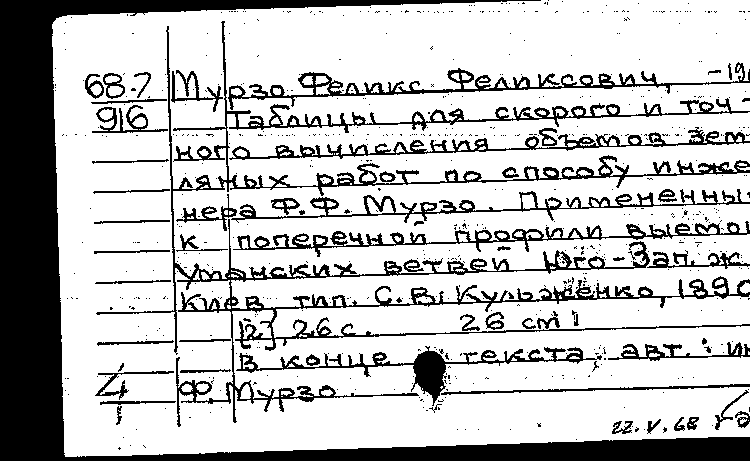 68-7 Мурзо, Феликс Феликсович, -19
916 Таблицы для скорого и точ-
ного вычисления объемов зем-
ляных работ по способу инже
нера Ф.Ф. Мурзо. Примененны
к поперечной профили выемо
Уманских ветвей Юго-Зап. ж.
Киев, тип. С.В. Кульженко, 1890
[2], 26 с. 26 cm
В конце текста авт.: ин
4 Ф. Мурзо.
1
22.V.68